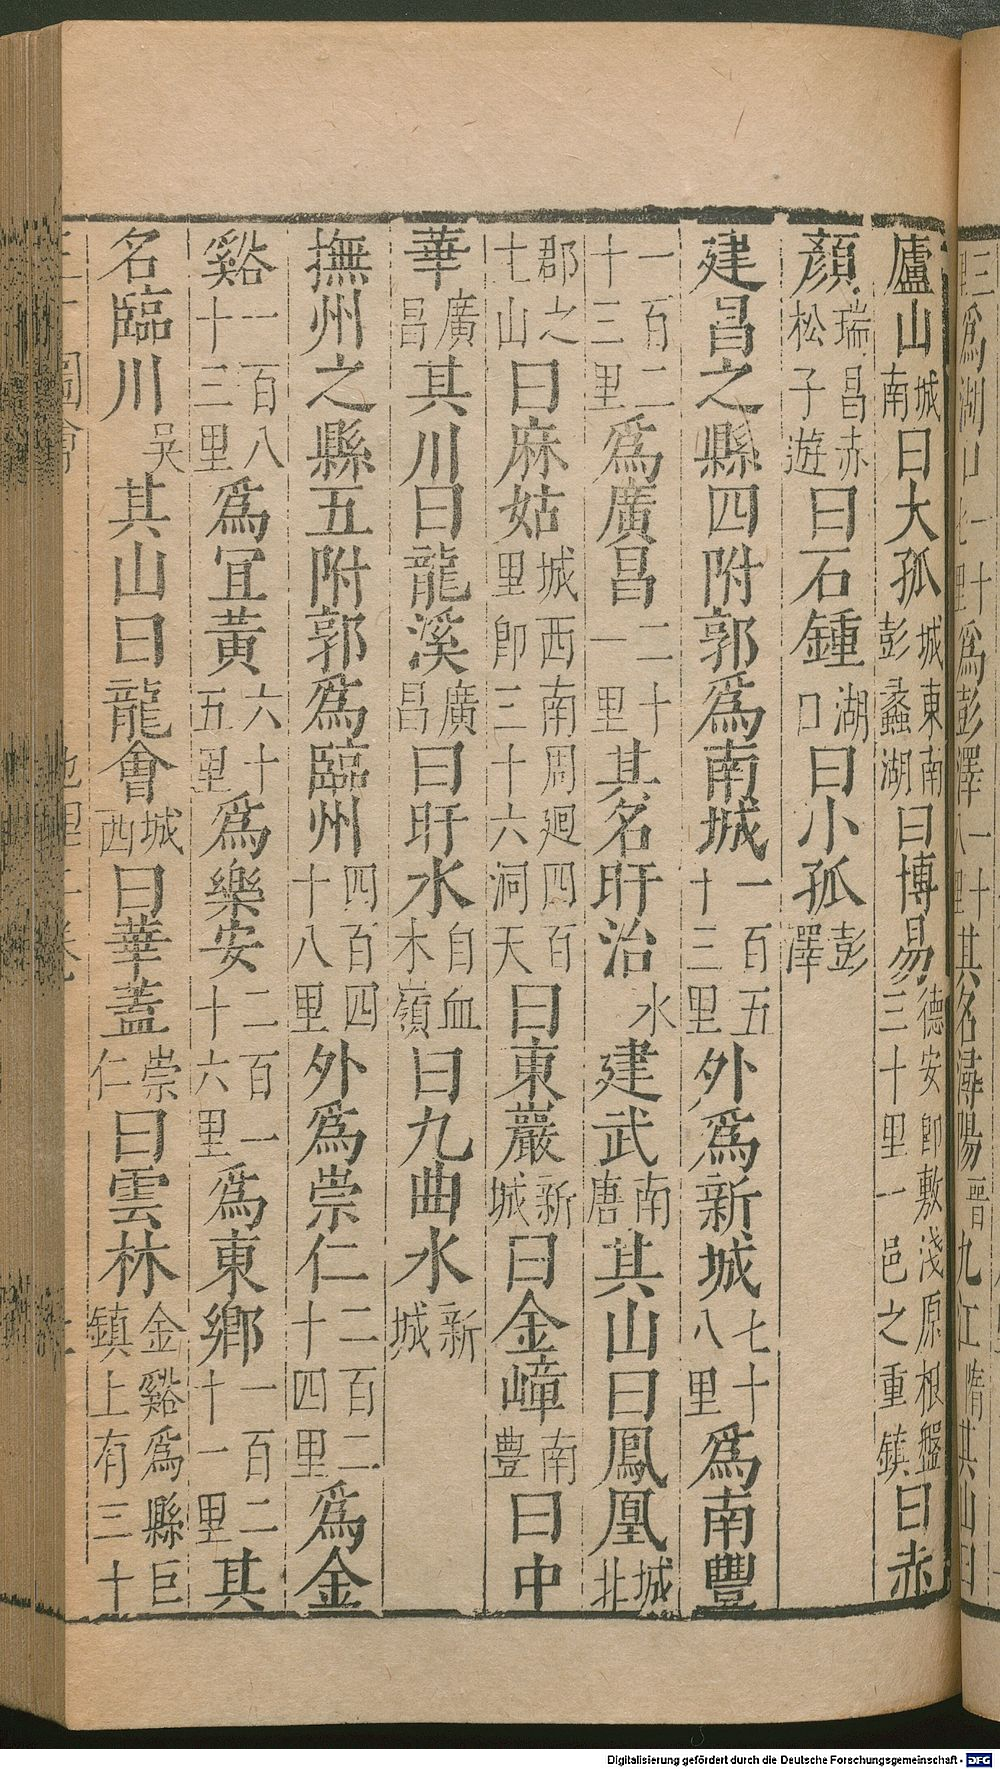 廬山城南曰大孤城東南彭蠡湖曰博昜德安卽敷淺原根盤三十里一邑之重鎮曰赤
顏瑞昌赤松子遊曰石鍾湖口曰小孤彭澤
建昌之縣四附郭爲南城一百五十三里外爲新城七十八里爲南豐
一百二十三里爲廣昌二十一里其名盱治水建武南唐其山曰鳳凰城北
郡之七山曰麻姑城西南周廻四百里卽三十六洞天曰東巖新城曰金嶂南豐曰中
華廣昌其川曰龍溪廣昌曰盱水自血木嶺曰九曲水新城
撫州之縣五附郭爲臨州四百四十八里外爲崇仁二百二十四里爲金
谿一百八十三里爲宜黃六十五里爲樂安二百一十六里爲東鄉一百二十一里其
名臨川吳其山曰龍會城西曰華蓋崇仁曰雲林金谿爲縣巨鎮上有三十
Digitalisierung gefördert durch die Deutsche Forschungsgemeinschaft - DFG